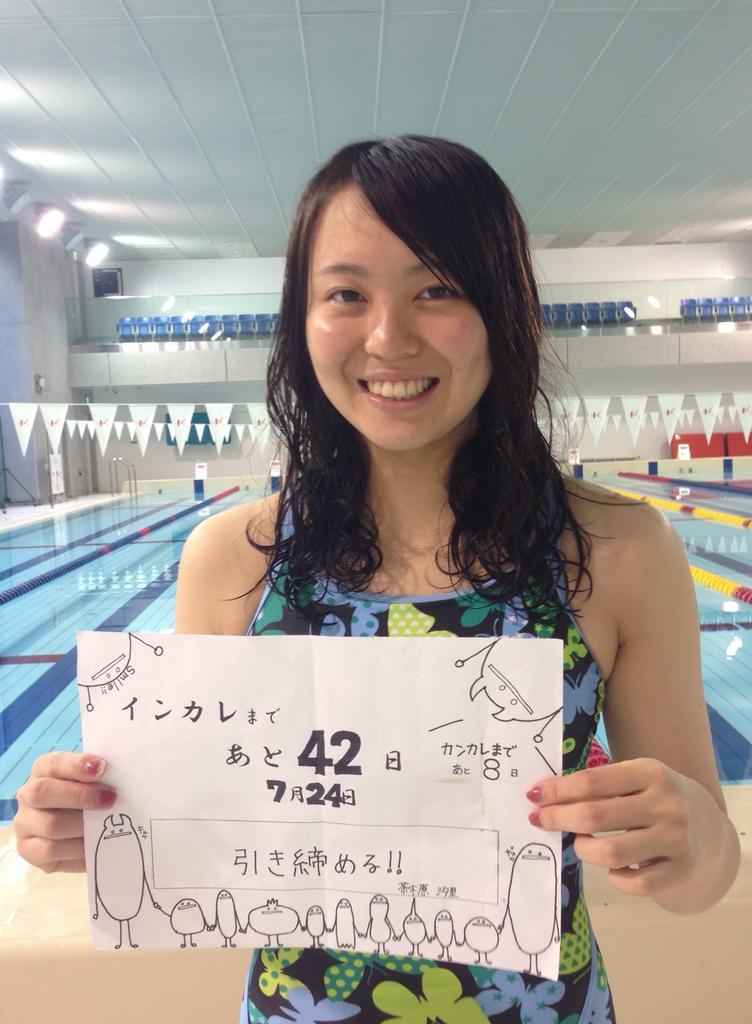 smile!!
インカレまで
あと 42 日
7月24日
カンカレまで
あと 8 日
引き締める!!
茶木原 汐里
ギュッ